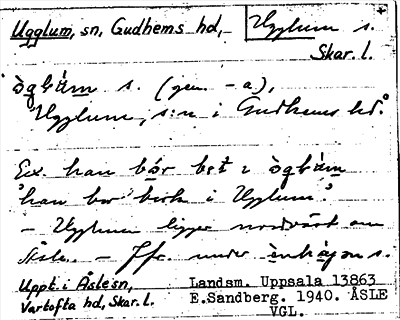 Ugglum, sn, Gudhems hd, Ugglum s.
Skar. l.
òglàm s. (gen. -a),
Ugglum, s:n i Gudhems hd.
Ex. han bór bɛt i òglàm
'han bor bort i Ugglum'.
– Ugglum ligger nordväst om
Åsle. – Jfr. under s.
Uppt. i Åsle sn,
Vartofta hd, Skar. l.
Landsm. Uppsala 13863
E.Sandberg. 1940. ÅSLE
VGL.